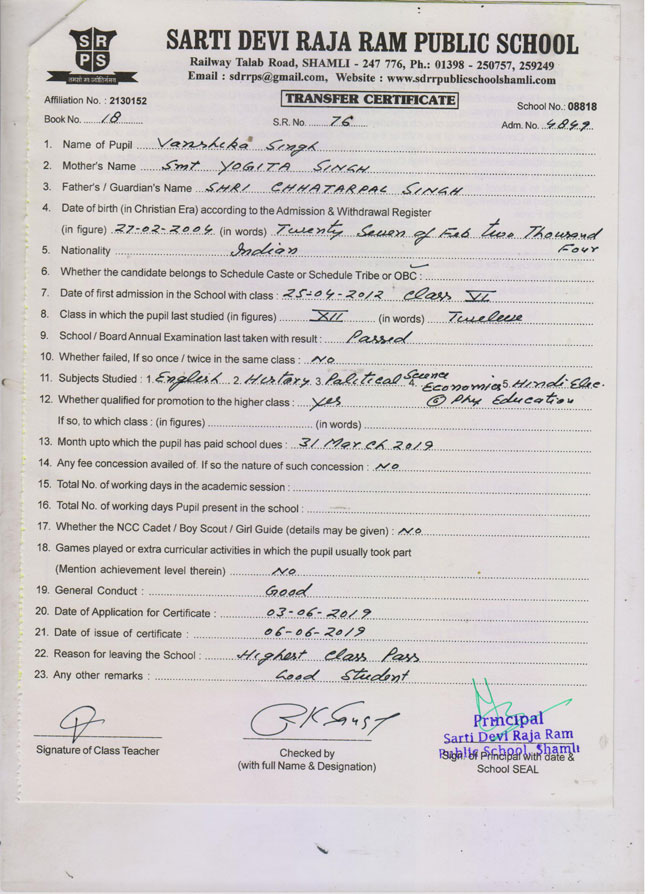 SRPS
तमसो मा ज्योतिर्गमय
SARTI DEVI RAJA RAM PUBLIC SCHOOL
Railway Talab Road, SHAMLI - 247 776, Ph.: 01398 - 250757, 259249
Email : sdrrps@gmail.com, Website : www.sdrrpublicschoolshamli.com
Affiliation No. : 2130152
TRANSFER CERTIFICATE
School No.: 08818
Book No. 18 S.R. No. 76 Adm. No. 4849
1. Name of Pupil Vanshika Singh
2. Mother's Name Smt YOGITA SINGH
3. Father's / Guardian's Name SHRI CHHATARPAL SINGH
4. Date of birth (in Christian Era) according to the Admission & Withdrawal Register
(in figure) 27-02-2004 (in words) Twenty Seven of Feb two Thousand
Four
5. Nationality Indian
6. Whether the candidate belongs to Schedule Caste or Schedule Tribe or OBC :
7. Date of first admission in the School with class : 25-04-2012 Class VI
8. Class in which the pupil last studied (in figures) XII (in words) Tweleve
9. School / Board Annual Examination last taken with result : Passed
10. Whether failed, If so once / twice in the same class : No
11. Subjects Studied : 1. English 2. History 3. Political Science 4. Economics 5. Hindi Elec.
12. Whether qualified for promotion to the higher class : yes ⑥ Phy Education
If so, to which class : (in figures) (in words)
13. Month upto which the pupil has paid school dues : 31 March 2019
14. Any fee concession availed of. If so the nature of such concession : No
15. Total No. of working days in the academic session :
16. Total No. of working days Pupil present in the school :
17. Whether the NCC Cadet / Boy Scout / Girl Guide (details may be given) : No
18. Games played or extra curricular activities in which the pupil usually took part
(Mention achievement level therein) No
19. General Conduct : Good
20. Date of Application for Certificate : 03-06-2019
21. Date of issue of certificate : 06-06-2019
22. Reason for leaving the School : Highest Class Pass
23. Any other remarks : Good Student
Signature of Class Teacher
Checked by
(with full Name & Designation)
Principal
Sarti Devi Raja Ram
Public School, Shamli
Sign. of Principal with date &
School SEAL